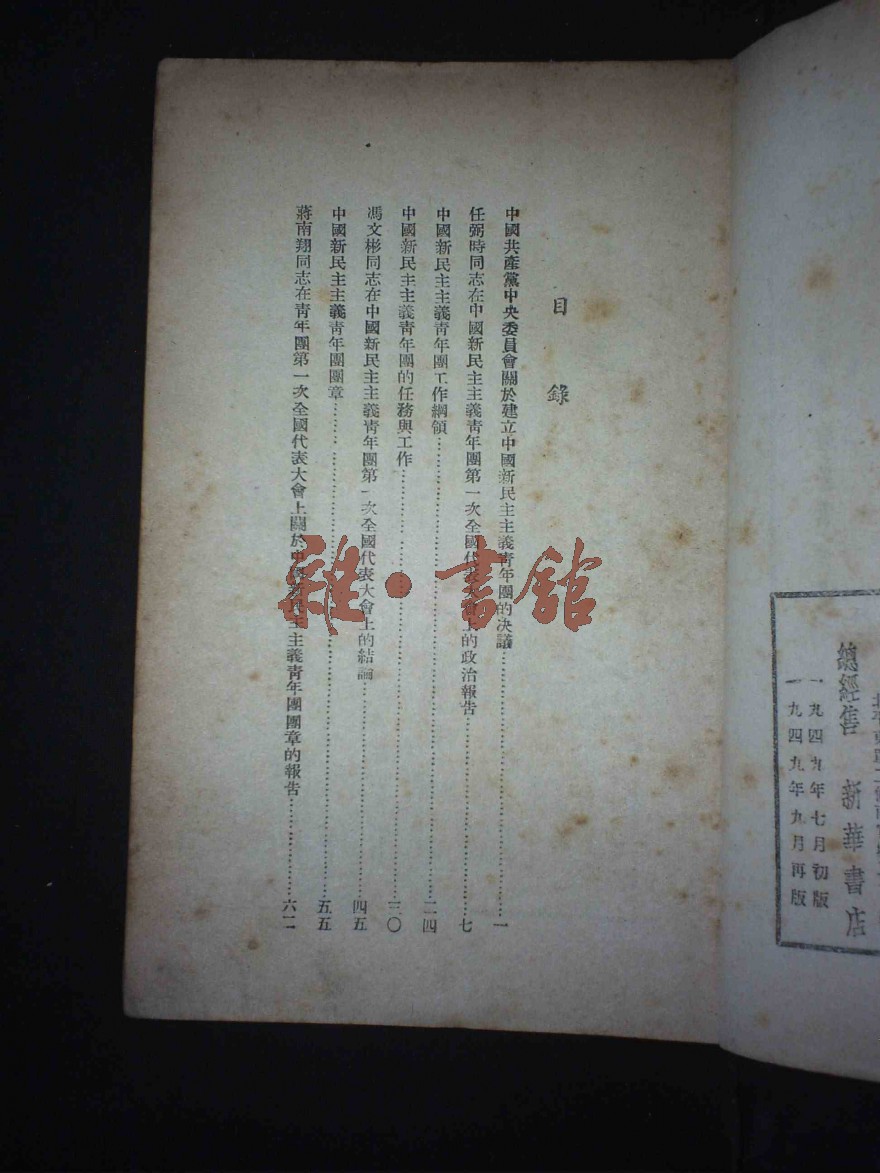 北
總經售 新華書店
一九四九年七月初版
一九四九年九月再版
目錄
中國共產黨中央委員會關於建立中國新民主主義青年團的決議……一
任弼時同志在中國新民主主義青年團第一次全國代表大會上的政治報告……七
中國新民主主義青年團工作綱領……二四
中國新民主主義青年團的任務與工作……三〇
馮文彬同志在中國新民主主義青年團第一次全國代表大會上的結論……四五
中國新民主主義青年團團章……五五
蔣南翔同志在青年團第一次全國代表大會上關於中國新民主主義青年團團章的報告……六二
雜·書館